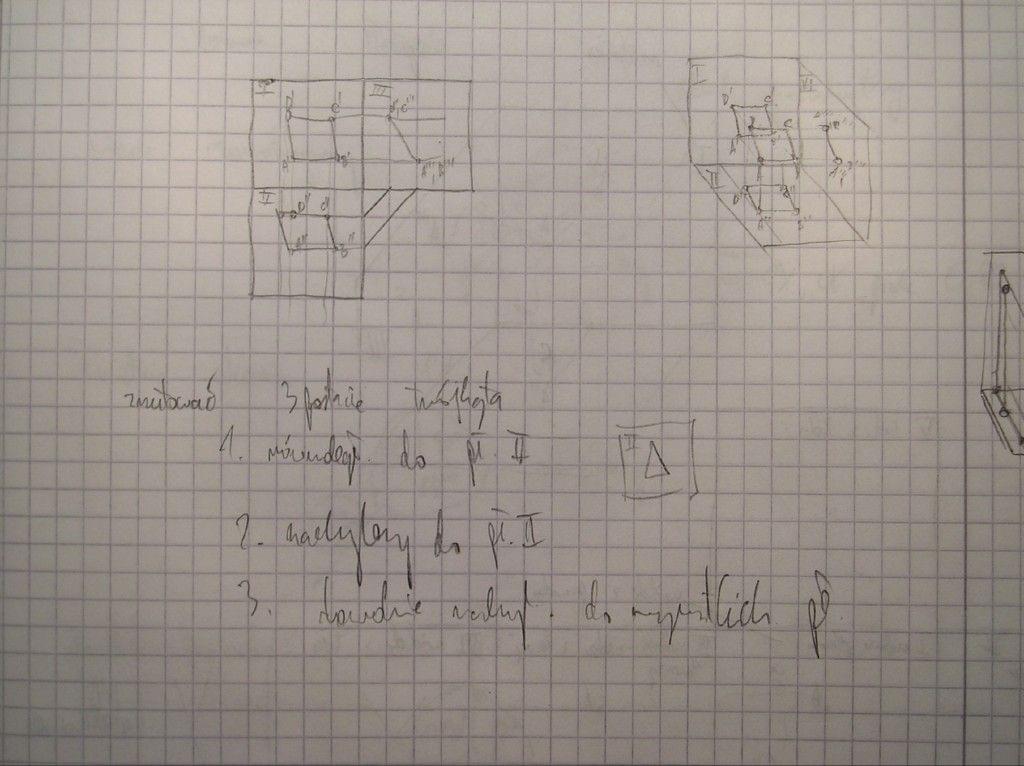 I III
D' C' D''' C'''
A' B' A''' B'''
II
D'' C''
A'' B''
I III
D' C'
A' C
II
D''
A'' B''
zrzutować 3 położenie trójkąta
1. równoległ. do pł. II
II
2. nachylony do pł. II
3. dowolnie nachyl. do wszystkich pł.